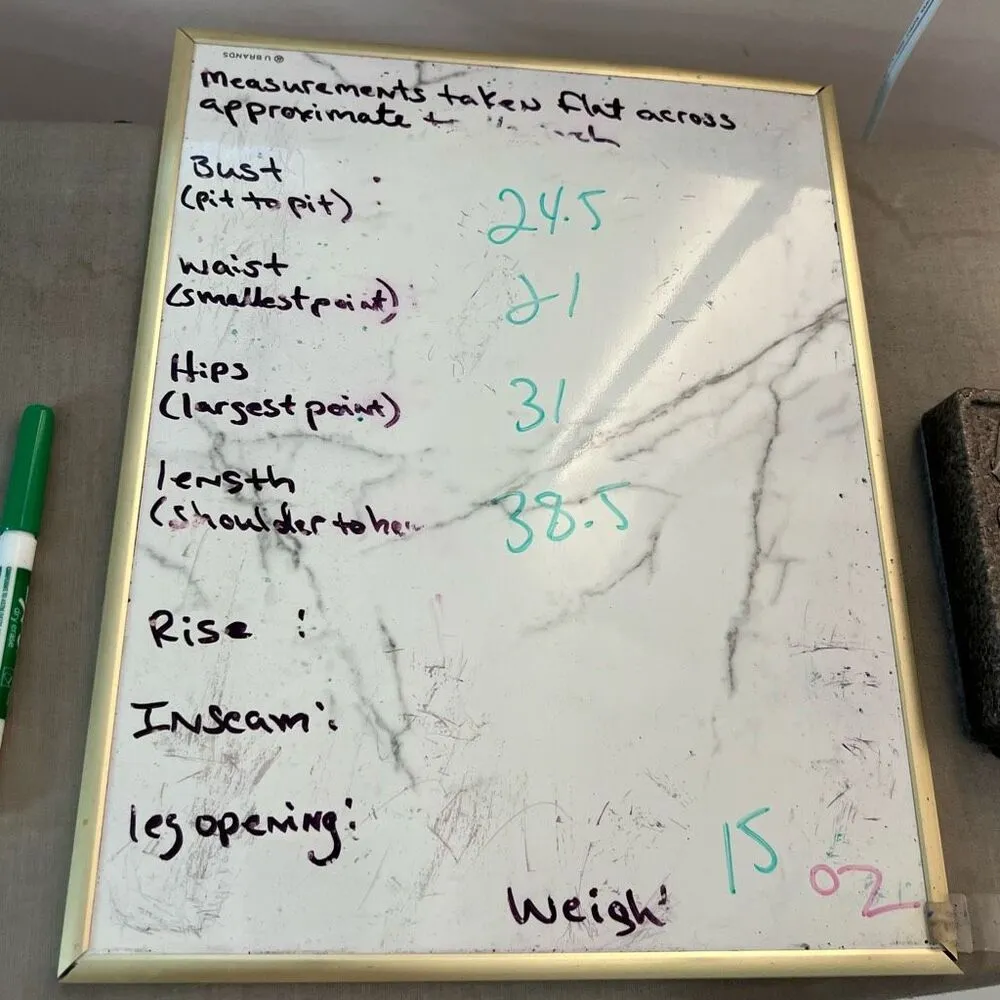 U BRANDS
Measurements taken flat across
approximate
Bust
(pit to pit) :
24.5
Waist
(smallest point)
21
Hips
(largest point)
31
length
(shoulder to
38.5
Rise :
Inseam:
leg opening:
15
oz
Weigh
dry erase